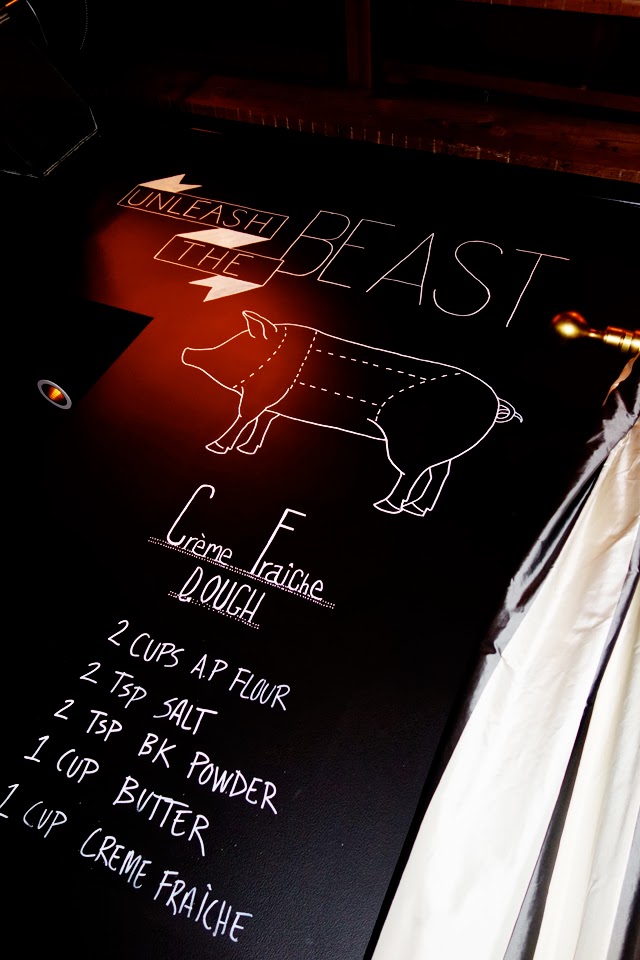 UNLEASH
THE
BEAST
Crème Fraiche
DOUGH
2 CUPS A.P FLOUR
2 TSP SALT
2 TSP BK POWDER
1 CUP BUTTER
1 CUP CREME FRAÌCHE